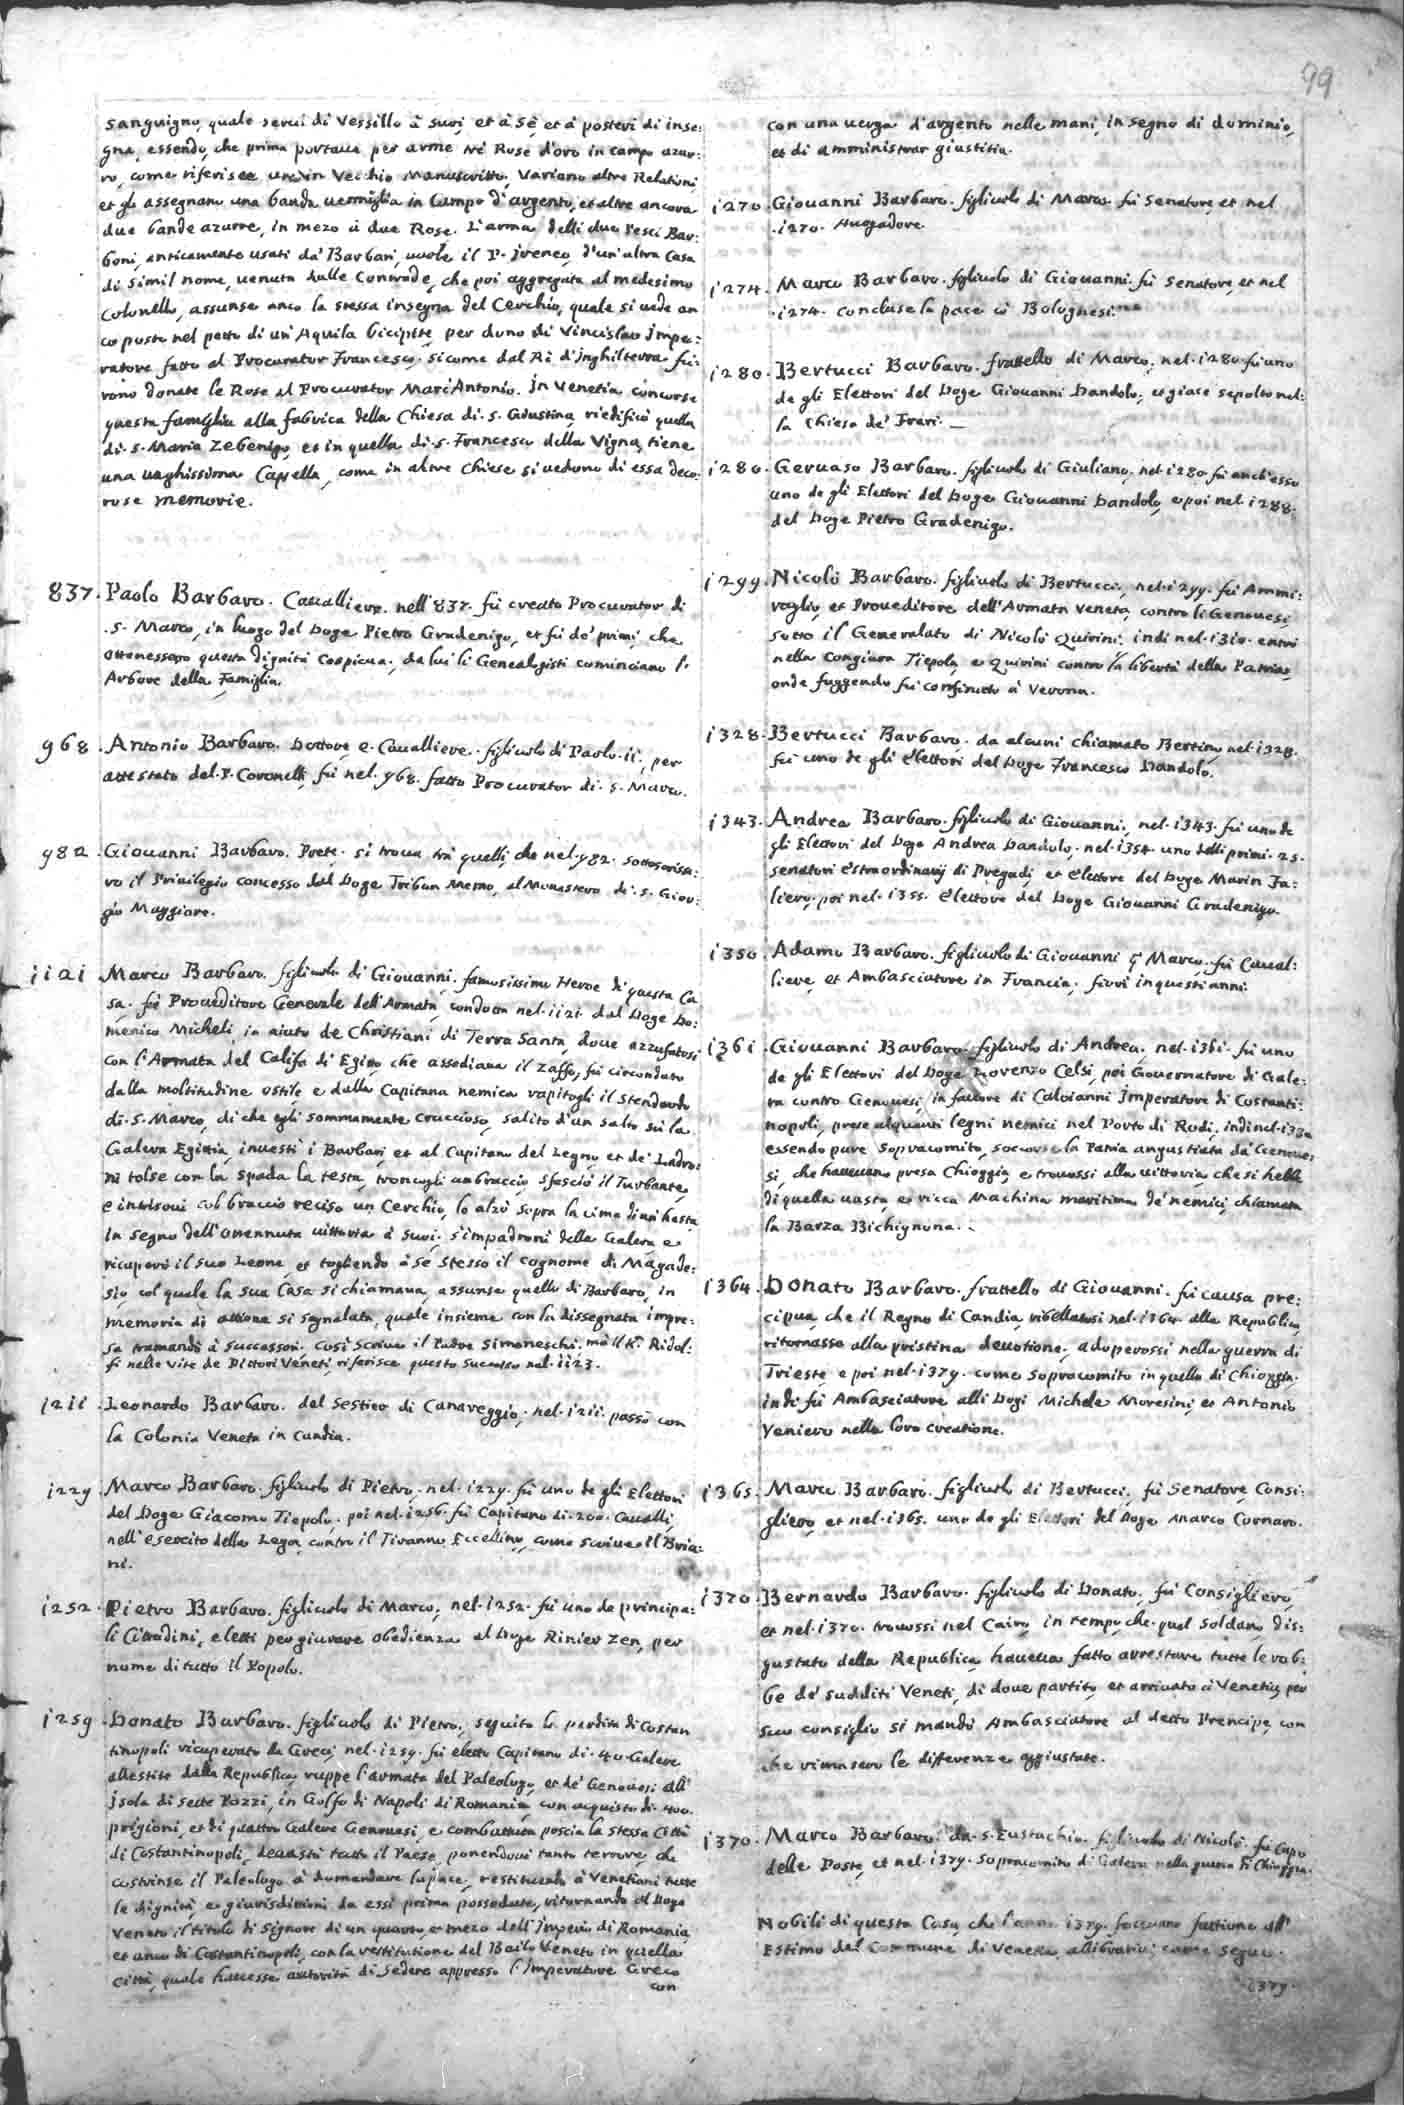 99
sanguigno, quale seruì di Vessillo à suoi, et à sè, et à posteri di inse:
gna, essendo, che prima portaua per arme trè Rose d'oro in campo azur:
ro, come riferisce un Vecchio Manuscritto, Variano altre Relationi,
et gli assegnano una banda uermiglia in Campo d'argento, et altre ancora
due bande azurre, in mezo à due Rose. L'arma delli due Pesci Bar:
boni, anticamente usati da' Barbari, uuole il P. Jreneo, d'un'altra Casa
di simil nome, uenuta dalle Contrade, che poi aggregata al medesimo
Colonello, assunse anco la stessa insegna del Cerchio, quale si uede an
co posto nel petto di un'Aquila bicipite, per dono di Vincislao Jmpe:
ratore fatto al Procurator Francesco, sicome dal Rè d'Jnghilterra fu:
rono donate le Rose al Procurator Marc'Antonio. Jn Venetia, concorse
questa famiglia alla fabrica della Chiesa di S. Giustina, riedificò quella
di S. Maria Zebenigo, et in quella di S. Francesco della Vigna, tiene
una uaghissima Cappella, come in altre Chiese si uedono di essa deco:
rose memorie.
837. Paolo Barbaro. Cauallier. nell'837. fù creato Procurator di
S. Marco, in luogo del Doge Pietro Gradenigo, et fù de' primi, che
ottenessero questa dignità cospicua, da lui li Genealogisti cominciano l'
Arbore della Famiglia.
968. Antonio Barbaro. Dottore, e Cauallier. figliuolo di Paolo ii, per
attestato del P. Coronelli, fù nel 968. fatto Procurator di S. Marco.
982. Giouanni Barbaro. Prete. si troua trà quelli, che nel 982. sottoscrisse:
ro il Priuilegio concesso dal Doge Tribun Memo, al Monastero di S. Gior:
gio Maggiore.
1121. Marco Barbaro. figliuolo di Giouanni. famosissimo Heroe di questa Ca
sa. fù Proueditore Generale dell'Armata, condotta nel 1121. dal Doge Do:
menico Micheli, in aiuto de Christiani di Terra Santa, doue azzufatosi
con l'Armata del Califa di Egitto che assediaua il Zaffo, fù circondato
dalla moltitudine ostile, e dalla Capitana nemica rapitogli il Stendardo
di S. Marco, di che egli sommamente cruccioso, salito d'un salto sù la
Galera Egittia, inuestì i Barbari, et al Capitano del Legno, et de' Ladro:
ni tolse con la spada la testa, troncogli un braccio, sfasciò il Turbante,
e intrisoui col braccio reciso un Cerchio, lo alzò sopra la cima di un'hasta,
in segno dell'ottennuta uittoria à suoi, s'impadronì della Galera e
ricuperò il suo Leone, et togliendo à sè stesso il cognome di Magade:
sio, col quale la sua Casa si chiamaua, assunse quello di Barbaro, in
memoria di attione sì segnalata, quale insieme con la dissegnata impre:
sa tramandò à successori, così scriue il Padre Simoneschi, mà il Kr. Ridol:
fi nelle vite de Pittori Veneti, riferisce questo successo nel 1123.
1211. Leonardo Barbaro. del Sestier di Canareggio, nel 1211. passò con
la Colonia Veneta in Candia.
1229. Marco Barbaro. figliuolo di Pietro, nel 1229. fù uno de gli Elettori
del Doge Giacomo Tiepolo. poi nel 1256. fù Capitano di 200. Caualli,
nell'esercito della Lega, contro il Tiranno Eccellino, come scriue il Bria:
ni.
1252. Pietro Barbaro. figliuolo di Marco, nel 1252. fù uno de principa:
li Cittadini, eletti per giurare obedienza al Doge Rinier Zen, per
nome di tutto il Popolo.
1259. Donato Barbaro. figliuolo di Pietro, seguita la perdita di Costan
tinopoli ricuperato da Greci, nel 1259. fù eletto Capitano di 40. Galere
allestite dalla Republica, ruppe l'armata del Paleologo, et de' Genouesi all'
Jsola di Sette Pozzi, in Golfo di Napoli di Romania, con acquisto di 400.
prigioni, et di quattro Galere Genouesi, e combattuta poscia la stessa Città
di Costantinopoli, deuastò tutto il Paese, ponendoui tanto terrore, che
costrinse il Paleologo à domandare la pace, restituendo à Venetiani tutte
le dignità, e giurisditioni da essi prima possedute, ritornando al Doge
Veneto il titolo di Signore di un quarto, e mezo dell'Jmperio di Romania,
et anco di Costantinopoli, con la restitutione del Bailo Veneto in quella
Città, quale hauesse autorità di sedere appresso l'Imperatore Greco
con
con una uerga d'argento nelle mani, in segno di dominio,
et di amministrar giustitia.
1270. Giouanni Barbaro. figliuolo di Marco. fù Senatore, et nel
1270. Auogadore.
1274. Marco Barbaro. figliuolo di Giouanni. fù Senatore, et nel
1274. concluse la pace cò Bolognesi.
1280. Bertucci Barbaro. frattello di Marco. nel 1280. fù uno
de gli Elettori del Doge Giouanni Dandolo, et giace sepolto nel:
la Chiesa de' Frari.
1280. Geruaso Barbaro. figliuolo di Giuliano, nel 1280. fù anch'esso
uno de gli Elettori del Doge Giouanni Dandolo, e poi nel 1288.
del Doge Pietro Gradenigo.
1299. Nicolò Barbaro. figliuolo di Bertucci, nel 1299. fù Ammi:
raglio, et Proueditore dell'Armata Veneta, contro li Genouesi
sotto il Generalato di Nicolò Quirini, indi nel 1310. entrò
nella congiura Tiepola, e Quirini contro la libertà della Patria,
onde fuggendo fù confinato à Verona.
1328. Bertucci Barbaro. da alcuni chiamato Bertino, nel 1328.
fù uno de gli Elettori del Doge Francesco Dandolo.
1343. Andrea Barbaro. figliuolo di Giouanni, nel 1343. fù uno de
gli Elettori del Doge Andrea Dandolo, nel 1354. uno delli primi 25.
senatori estraordinarij di Pregadi, et Elettore del Doge Marin Fa:
liero, poi nel 1355. Elettore del Doge Giouanni Gradenigo.
1350. Adamo Barbaro. figliuolo di Giouanni q. Marco, fù Caual:
liere, et Ambasciatore in Francia, fiorì in questi anni.
1361. Giouanni Barbaro. figliuolo di Andrea, nel 1361. fù uno
de gli Elettori del Doge Lorenzo Celsi, poi Gouernatore di Gale:
ra contro Genouesi, in fauore di Caloianni Jmperatore di Costanti:
nopoli, prese alquanti legni nemici nel Porto di Rodi, indi nel 1379
essendo pure Sopracomito, soccorse la Patria angustiata da' Genoue:
si, che haueuano presa Chioggia, e trouossi alla uittoria che si hebbe
di quella uasta, e ricca Machina maritima de' nemici, chiamata
la Barza Bichignona.
1364. Donato Barbaro. frattello di Giouanni. fù causa pre:
cipua, che il Regno di Candia, ribellatosi nel 1364. alla Republica,
ritornasse alla pristina deuotione, adoperossi nella guerra di
Trieste e poi nel 1379. come sopracomito in quella di Chioggia.
indi fù Ambasciatore alli Dogi Michele Moresini, et Antonio
Veniero nella loro creatione.
1365. Marco Barbaro. figliuolo di Bertucci, fù Senatore, Consi:
gliero, et nel 1365. uno de gli Elettori del Doge Marco Cornaro.
1370. Bernardo Barbaro. figliuolo di Donato, fù Consigliero,
et nel 1370. trouossi nel Cairo, in tempo, che quel Soldano, dis:
gustato della Republica, haueua fatto arrestare tutte le rob:
be de' sudditi Veneti, di doue partito, et arriuato à Venetia, per
suo consiglio si mandò Ambasciatore al detto Prencipe, con
che rimasero le differenze aggiustate.
1370. Marco Barbaro. da S. Eustachio. figliuolo di Nicolò. fù Capo
delle Poste, et nel 1379. Sopracomito di Galera nella guerra di Chioggia.
Nobili di questa Casa, che l'anno 1379. faceuano fattione all'
Estimo del Commune di Venetia, allibrarij; come segue.
1379.